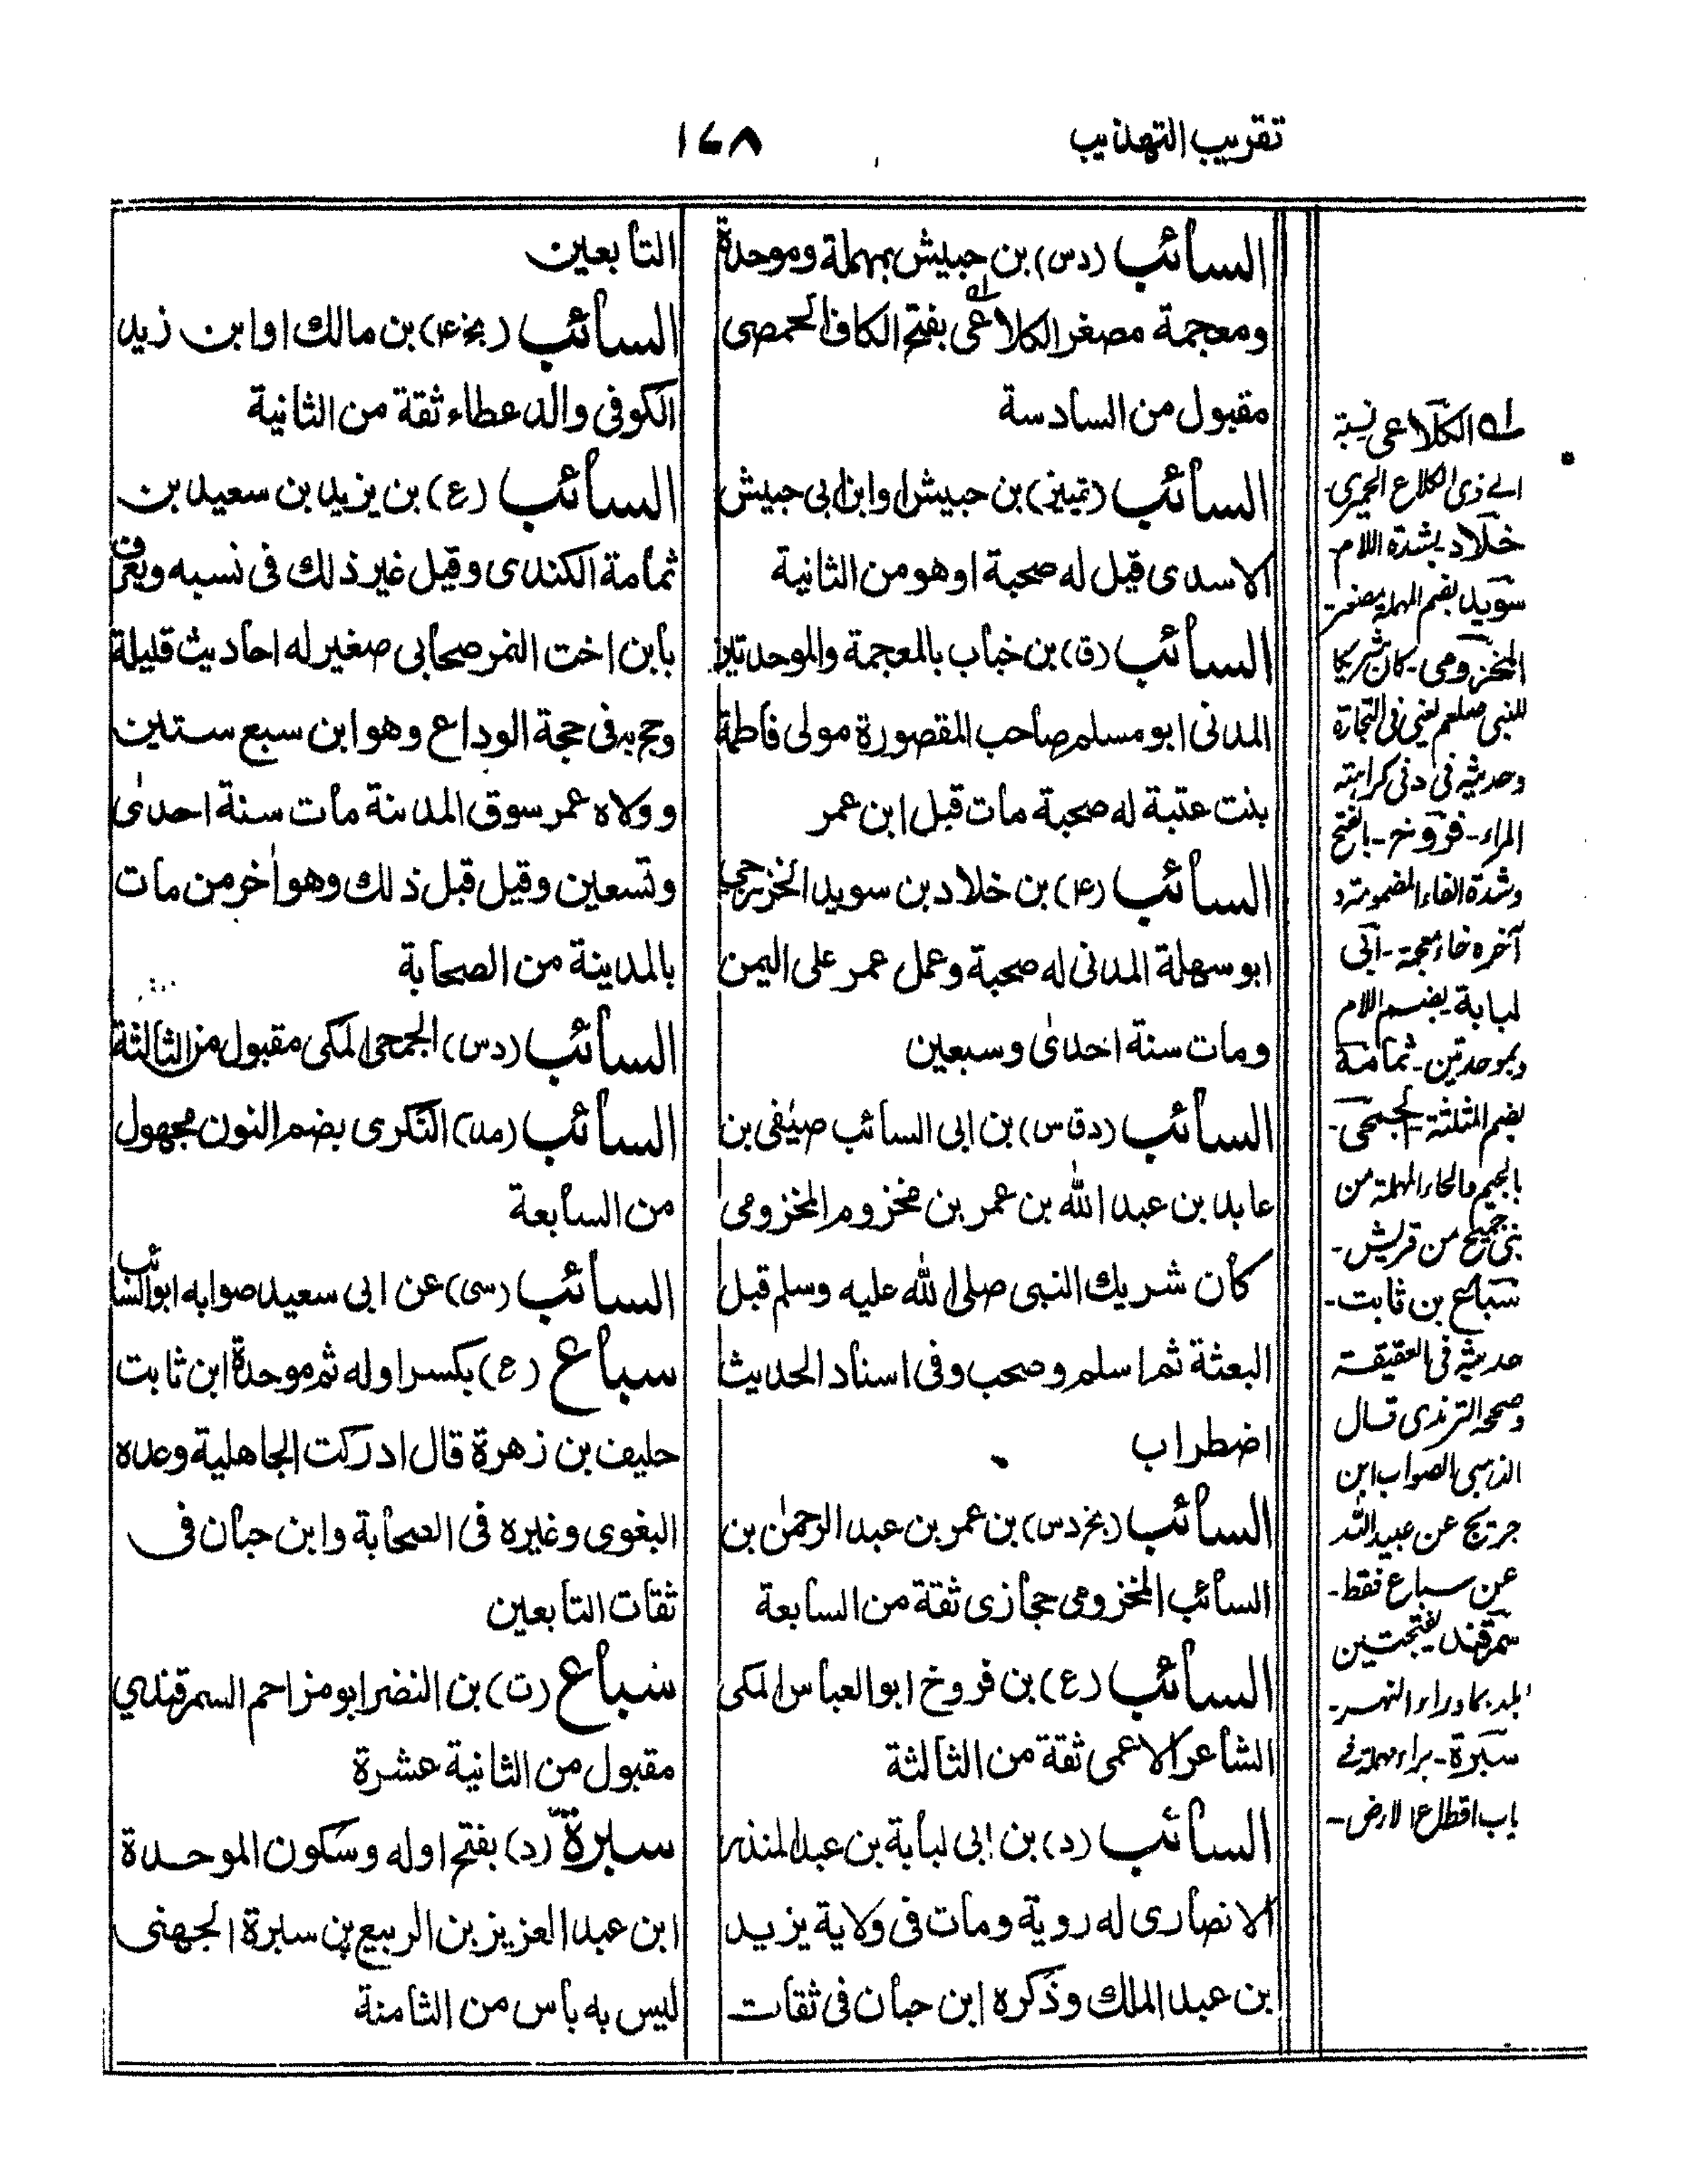 تقريب التهذيب
١٤٨
السائب (دس) بن حبيش بمهملة وموحدة
ومعجمة مصغر الكلاعى بفتح الكاف الحمصى
مقبول من السادسة
السائب (تمييز) بن حبيش او ابن ابى حبيش
الاسدى قيل له صحبة او هو من الثانية
السائب (ق) بن خباب بالمعجمة والموحدتين
المدنى ابو مسلم صاحب المقصورة مولى فاطمة
بنت عتبة له صحبة مات قبل ابن عمر
السائب (۴) بن خلاد بن سويد الخزرجى
ابو سهلة المدنى له صحبة وعمل عمر على اليمن
ومات سنة احدىٰ وسبعين
السائب (دق س) بن ابى السائب صيفى بن
عابد بن عبد الله بن عمر بن مخزوم المخزومى
كان شريك النبى صلى الله عليه وسلم قبل
البعثة ثم اسلم وصحب وفى اسناد الحديث
اضطراب
السائب (بخ دس) بن عمر بن عبد الرحمٰن بن
السائب المخزومى حجازى ثقة من السابعة
السائب (ع) بن فروخ ابو العباس المكى
الشاعر الاعمى ثقة من الثالثة
السائب (د) بن ابى لبابة بن عبد المنذر
الانصارى له روية ومات فى ولاية يزيد
بن عبد الملك وذكره ابن حبان فى ثقات
التابعين
السائب (بخ۴) بن مالك او ابن زيد
الكوفى والد عطاء ثقة من الثانية
السائب (ع) بن يزيد بن سعيد بن
ثمامة الكندى وقيل غير ذلك فى نسبه ويعرف
بابن اخت النمر صحابى صغير له احاديث قليلة
وحج به فى حجة الوداع وهو ابن سبع ستين
وولاه عمر سوق المدينة مات سنة احدىٰ
وتسعين وقيل قبل ذلك وهو اٰخر من مات
بالمدينة من الصحابة
السائب (دس) الجمحى المكى مقبول من الثالثة
السائب (مد) النكرى بضم النون مجهول
من السابعة
السائب (سى) عن ابى سعيد صوابه ابو السائب
سباع (ع) بكسر اوله ثم موحدة ابن ثابت
حليف بن زهرة قال ادركت الجاهلية وعده
البغوى وغيره فى الصحابة وابن حبان فى
ثقات التابعين
سباع (ت) بن النضر ابو مزاحم السمرقندي
مقبول من الثانية عشرة
سبرة (د) بفتح اوله وسكون الموحدة
ابن عبد العزيز بن الربيع بن سبرة الجهنى
ليس به بأس من الثامنة
له الكلاعى نسبة
الے ذى الكلاع الحميرى-
خلاد بشدة اللام-
سويد بضم المهملة مصغر-
المخزومى-كان شريكا
للنبى صلعم يعنى فى التجارة
وحديثه فى دنى كراهته
المراء-فروخ-بالفتح
وشدة الفاء المضمومة و
آخره خاء معجمة-ابى
لبابة بضم اللام
بموحدتين-ثمامة
بضم المثلثة-الجمحى-
بالجيم والحاء المهملة من
بنى جميح من قريش-
سباع بن ثابت-
حديثه فى العقيقة
وصححه الترمذى قال
الذهبى الصواب ابن
جريج عن عبيد الله
عن سباع فقط-
سمرقند بفتحتين
بلد بماوراء النهر-
سبرة-براء مهملة فى
باب اقطاع الارض-